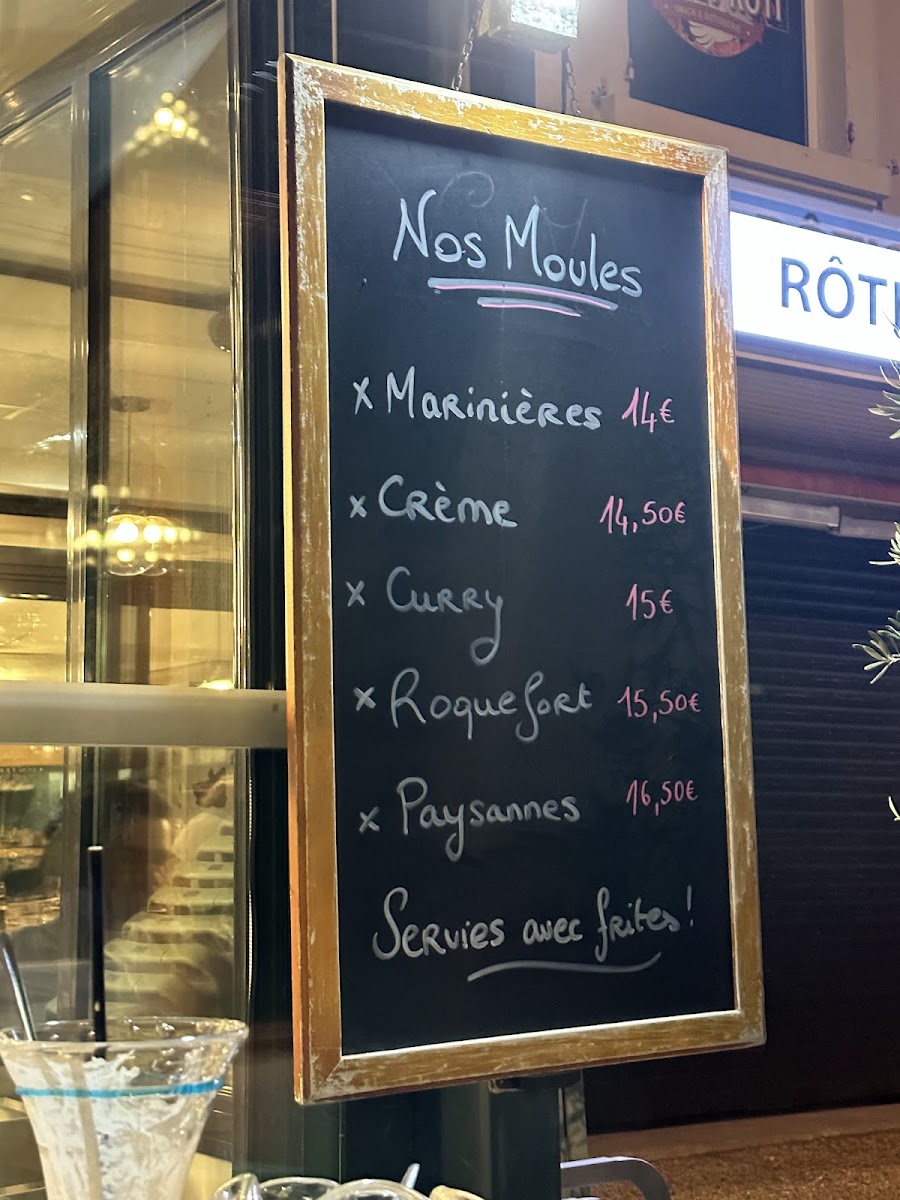 Nos Moules
x Marinières 14€
x Crème 14,50€
x Curry 15€
x Roquefort 15,50€
x Paysannes 16,50€
Servies avec frites !
RÔTI